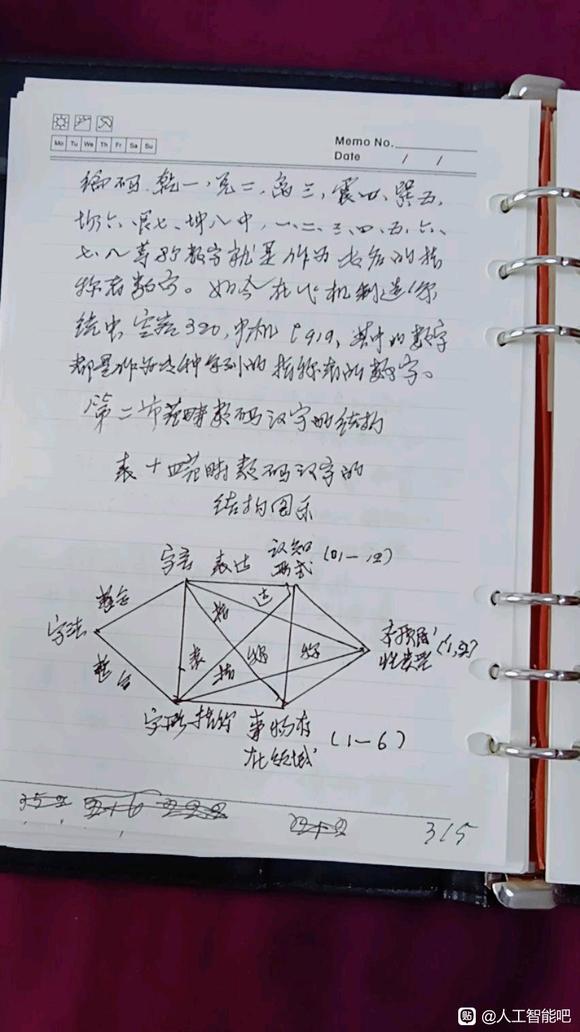 Mo Tu We Th Fr Sa Su
Memo No.
Date / /
编码.乾一、兑二、离三、震四、巽五、
坎六、艮七、坤八中,一、二、三、四、五、六、
七、八等的数字就是作为卦名的指
称者数字。如今在飞机制造系
统中空客320,中机C919,其中的数字
都是作为这种系列的指称者的数字。
第二节范畴数码汉字的结构
表十四范畴数码汉字的
结构图示
字言 表达 认知形式 (01—12)
整合 表 达
字法 表 指 称 称 本项属性类型 (1,2)
整合
字形 指称 事物存在领域 (1—6)
315
@人工智能吧